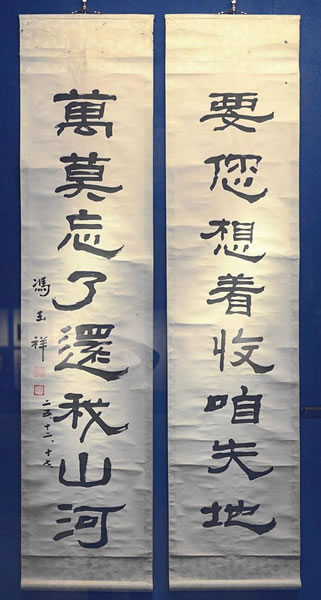 要您想着收咱失地
萬莫忘了還我山河
馮玉祥
二五、十二、十七